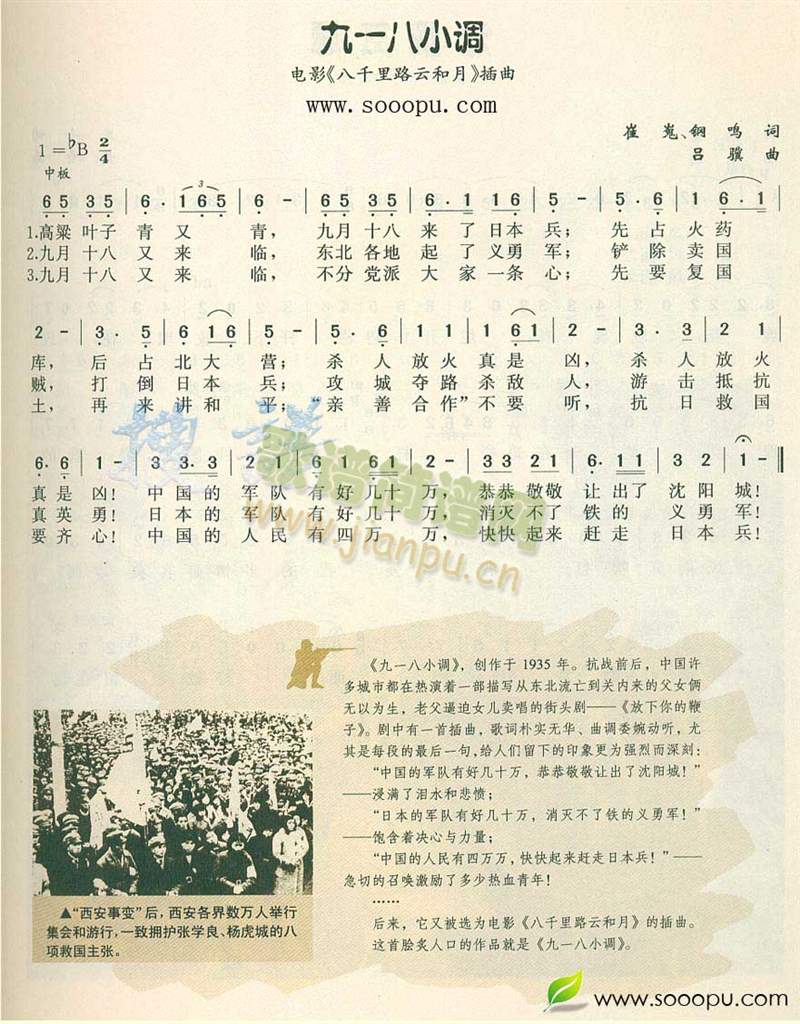 九一八小调
电影《八千里路云和月》插曲
www.sooopu.com
崔嵬、钢鸣 词
吕骥 曲
1=♭B 2/4
中板
6 5 3 5 | 6. 1 6 5 | 6 - | 6 5 3 5 | 6. 1 1 6 | 5 - | 5 5 | 1 6. 1 |
1.高粱 叶子 青 又 青, 九月 十八 来 了 日本 兵; 先 占 火 药
2.九月 十八 又 来 临, 东北 各地 起 了 义勇 军; 铲 除 卖 国
3.九月 十八 又 来 临, 不分 党派 大 家 一条 心; 先 要 复 国
2 - | 3. 5 | 6 1 6 | 5 - | 5. 6 | 1 1 | 1 6 1 | 2 - | 3. 3 | 2 1 |
库, 后 占 北 大 营; 杀 人 放 火 真 是 凶, 杀 人 放 火
贼, 打 倒 日 本 兵; 攻 城 夺 路 杀 敌 人, 游 击 抵 抗
土, 再 来 讲 和 平; “亲 善 合 作” 不 要 听, 抗 日 救 国
6. 6 | 1 - | 3 3. 3 | 2 1 | 1 6 6 1 | 2 - | 3 3 2 1 | 6. 1 1 | 3 2 | 1 - ‖
真 是 凶! 中 国 的 军 队 有 好 几 十 万, 恭恭 敬敬 让 出 了 沈 阳 城!
真 英 勇! 日 本 的 军 队 有 好 几 十 万, 消灭 不了 铁 的 义 勇 军!
要 齐 心! 中 国 的 人 民 有 四 万 万, 快快 起来 赶 走 日 本 兵!
歌谱简谱网
www.jianpu.cn
《九一八小调》, 创作于 1935 年。抗战前后, 中国许
多城市都在热演着一部描写从东北流亡到关内来的父女俩
无以为生, 老父逼迫女儿卖唱的街头剧——《放下你的鞭
子》。剧中有一首插曲, 歌词朴实无华、曲调委婉动听, 尤
其是每段的最后一句, 给人们留下的印象更为强烈而深刻:
“中国的军队有好几十万, 恭恭敬敬让出了沈阳城!”
——浸满了泪水和悲愤;
“日本的军队有好几十万, 消灭不了铁的义勇军!”
——饱含着决心与力量;
“中国的人民有四万万, 快快起来赶走日本兵!”——
急切的召唤激励了多少热血青年!
……
后来, 它又被选为电影《八千里路云和月》的插曲。
这首脍炙人口的作品就是《九一八小调》。
▲“西安事变”后, 西安各界数万人举行
集会和游行, 一致拥护张学良、杨虎城的八
项救国主张。
www.sooopu.com